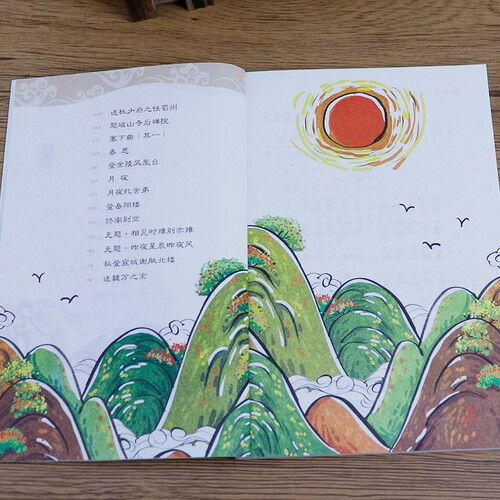 送杜少府之任蜀州
题破山寺后禅院
塞下曲（其一）
春思
登金陵凤凰台
月夜
月夜忆舍弟
登岳阳楼
终南别业
无题·相见时难别亦难
无题·昨夜星辰昨夜风
秋登宣城谢朓北楼
送魏万之京